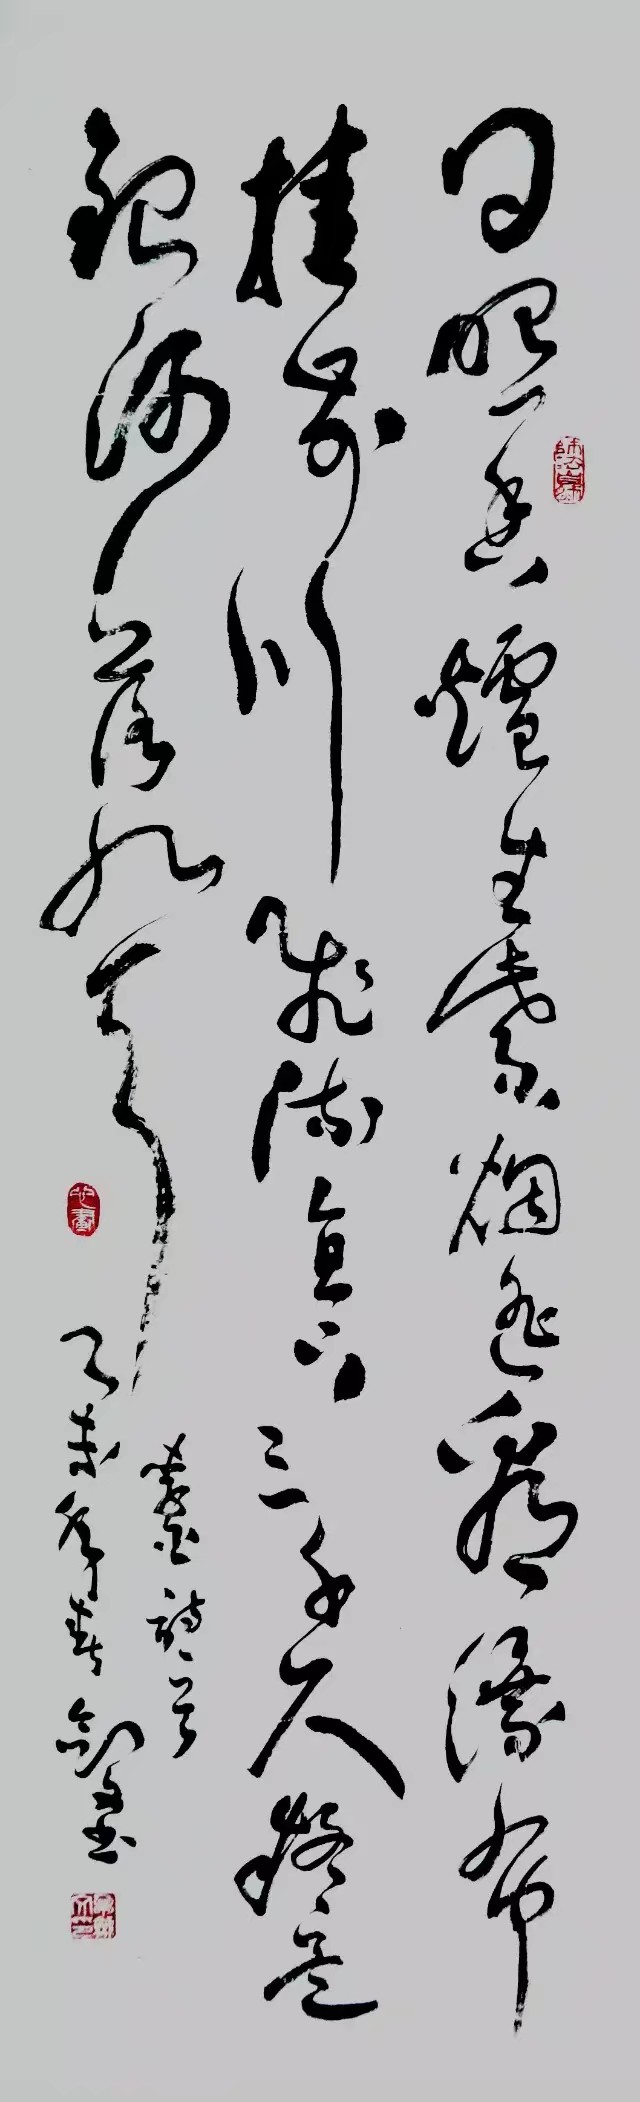 日照香爐生紫烟遥看瀑布
挂前川飛流直下三千尺疑是
銀河落九天
李白詩一首
乙未年春劍